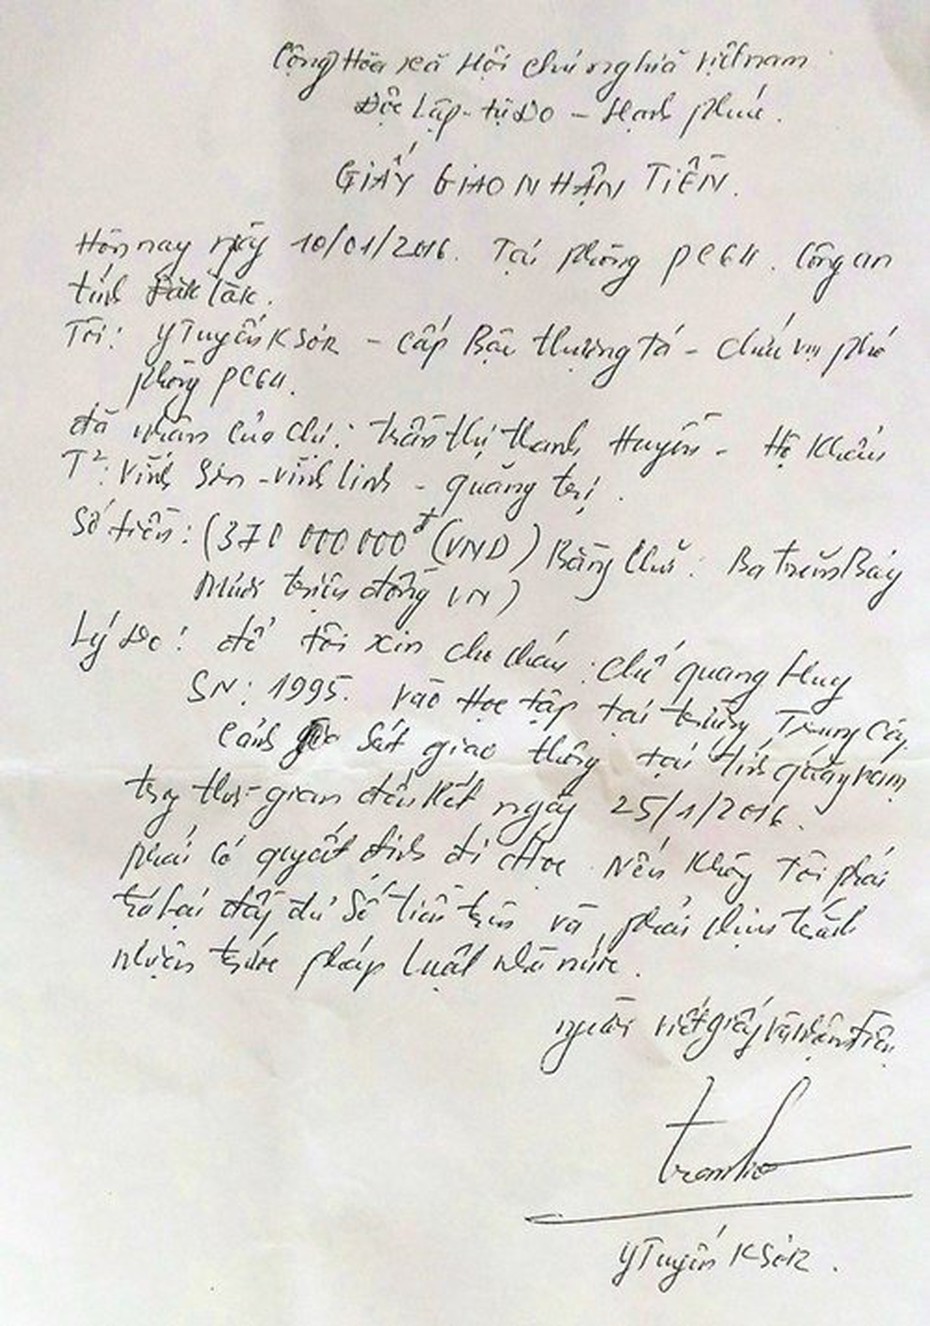 Cộng Hòa xã Hội chủ nghĩa việtnam
Độc Lập - tự Do - Hạnh phúc.
GIẤY GIAO NHẬN TIỀN.
Hôm nay ngày 10/01/2016. Tại phòng PC64. Công an
tỉnh Đăk Lăk.
Tôi: YTuyến KSơR - cấp Bậc thượng tá - chức vụ phó
phòng PC64.
đã nhận của chị: trần thị thanh Huyền - Hộ Khẩu
T²: Vĩnh Sơn - vĩnh linh - quảng trị.
Số tiền: (370 000 000đ (VND) Bằng chữ: Ba trăm Bảy
Mươi triệu đồng VN)
Lý Do: để tôi xin cho cháu: chế quang Huy
SN: 1995. vào Học tập tại trường Trung cấp
Cảnh sát giao thông tại tỉnh quảng nam
trong thời gian đến hết ngày 25/1/2016.
phải có quyết định đi Học. Nếu không tôi phải
trả lại đầy đủ số tiền trên và phải chịu trách
nhiệm trước pháp luật nhà nước.
người viết giấy và nhận tiền
YTuyến KSơR.